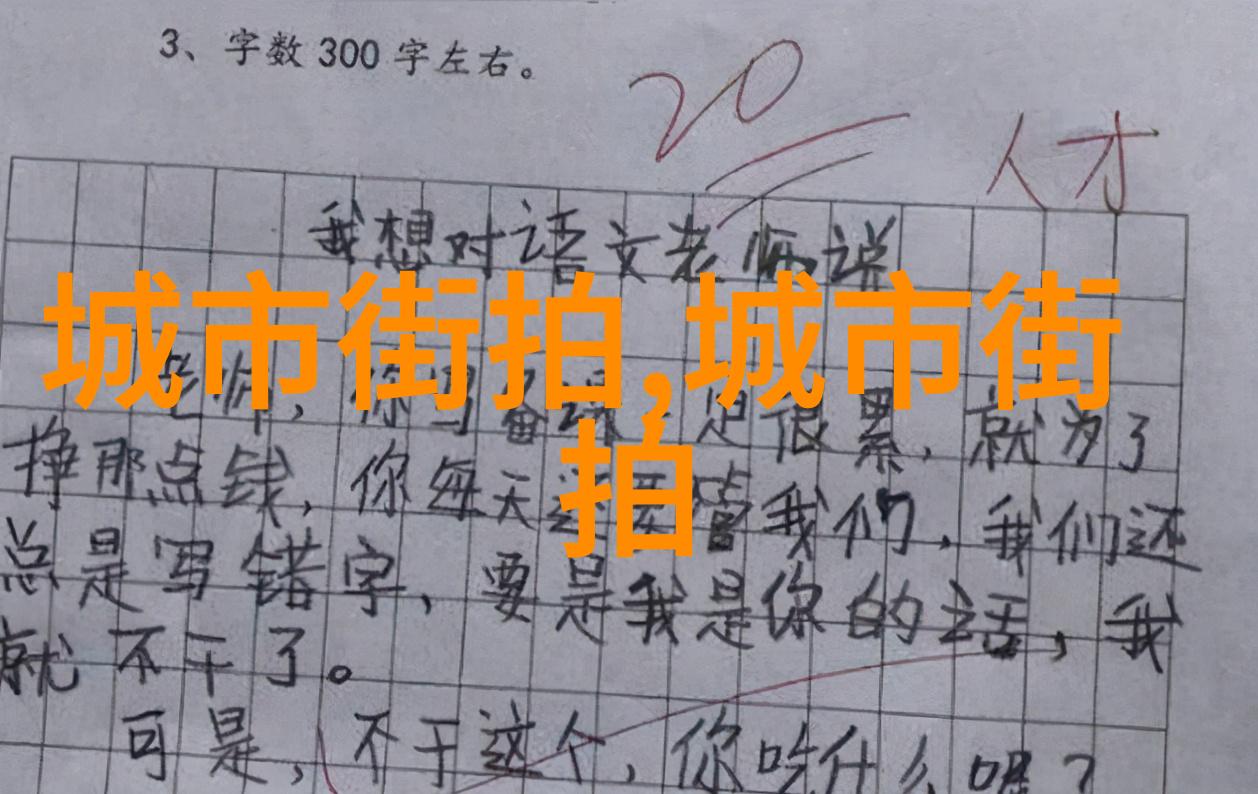 3、字数300字左右。
20
人才
我想对语文老师说
城市街拍,城市街
拍
老师，你写备课 是很累，就为了
挣那点钱，你每天还要管我们，我们还
总是写错字，要是我是你的话，我
就不干了。
可是，不干这个，你吃什么呢？